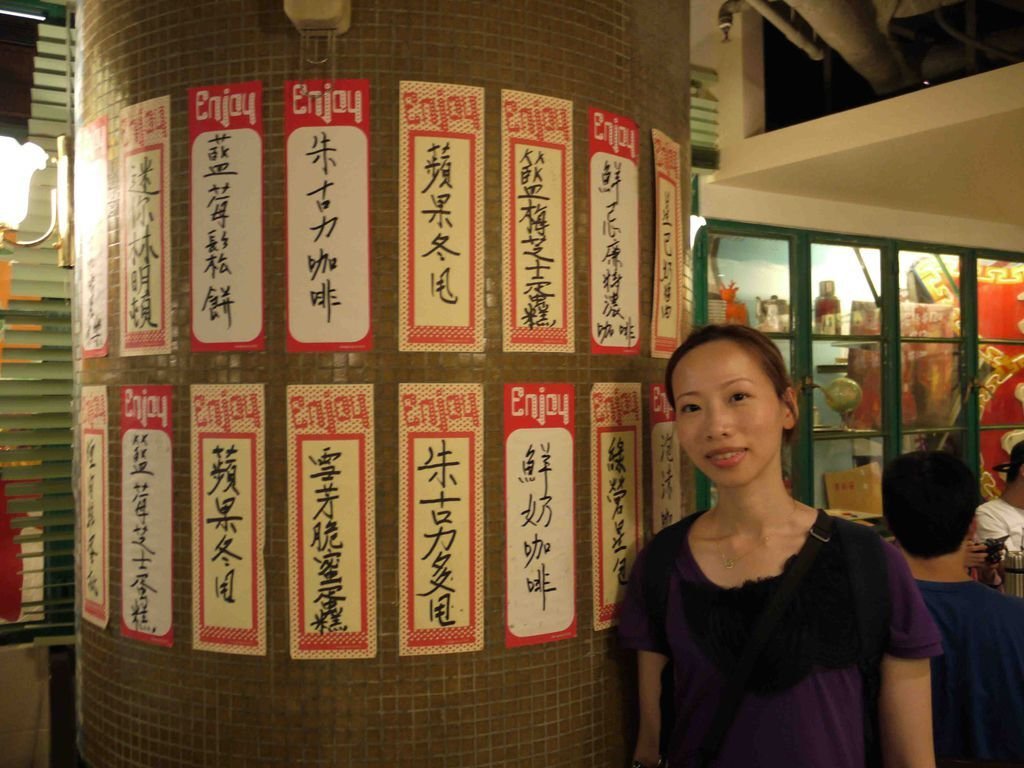 Enjoy
迷尔林明頓
Enjoy
藍莓鬆餅
Enjoy
朱古力咖啡
Enjoy
蘋果冬甩
Enjoy
籃梅芝士蛋糕
Enjoy
鮮忌廉特濃咖啡
Enjoy
籃莓芝士蛋糕
Enjoy
蘋果冬甩
Enjoy
雪芳脆蜜蛋糕
Enjoy
朱古力多甩
Enjoy
鮮奶咖啡
Enjoy
Enjoy
泡沫